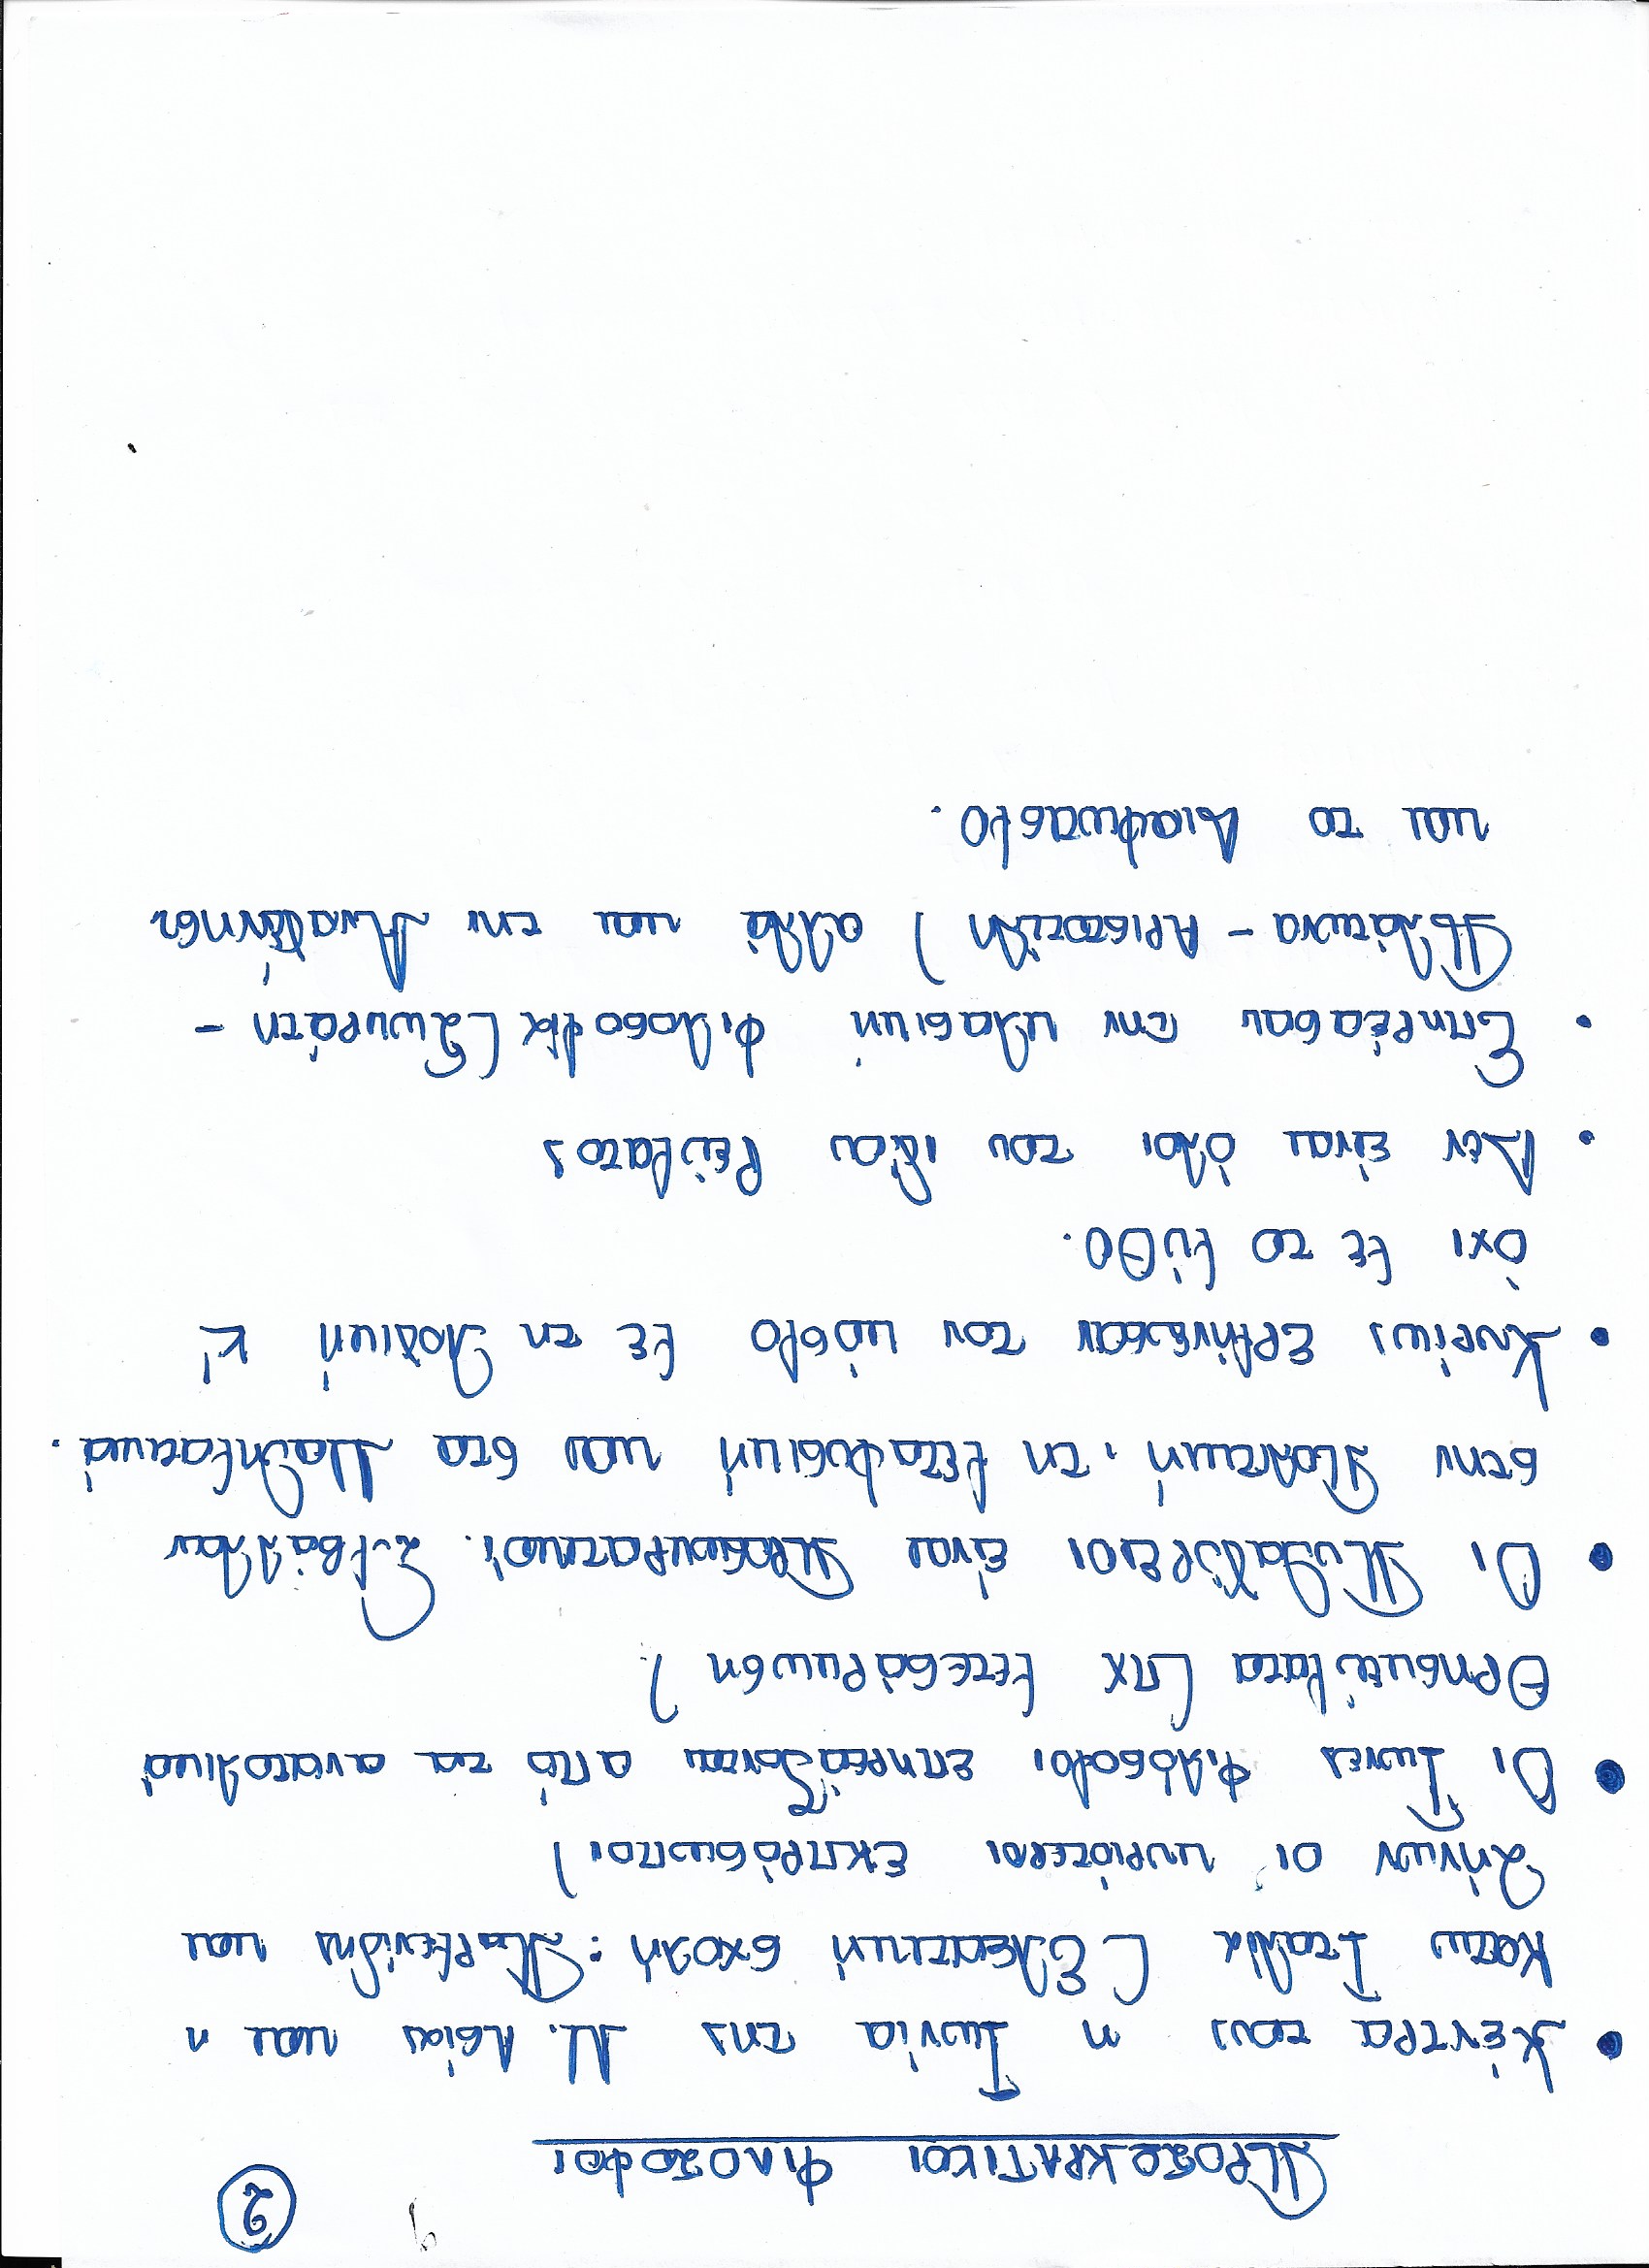 2
ΠΡΟΣΩΚΡΑΤΙΚΟΙ ΦΙΛΟΣΟΦΟΙ
• Κέντρα τους η Ιωνία της Μ. Ασίας και η
Κάτω Ιταλία (Ελεατική σχολή: Παρμενίδης και
Ζήνων οι κυριότεροι εκπρόσωποι)
• Οι Ίωνες φιλόσοφοι επηρεάζονται από τα ανατολικά
θρησκεύματα (πχ μετεμσάρκωση)
• Οι Πυθαγόρειοι είναι Προσωκρατικοί. Συμβάλλουν
στην πολιτική, τη μεταφυσική και στα Μαθηματικά.
• Κυρίως ερμήνευσαν τον κόσμο με τη λογική κ'
όχι με το μύθο.
• Δεν είναι όλοι του ίδιου ρεύματος
• Επηρέασαν την κλασική φιλοσοφία (Σωκράτη -
Πλάτωνα - Αριστοτέλη) αλλά και την Αναγέννηση
και το Διαφωτισμό.